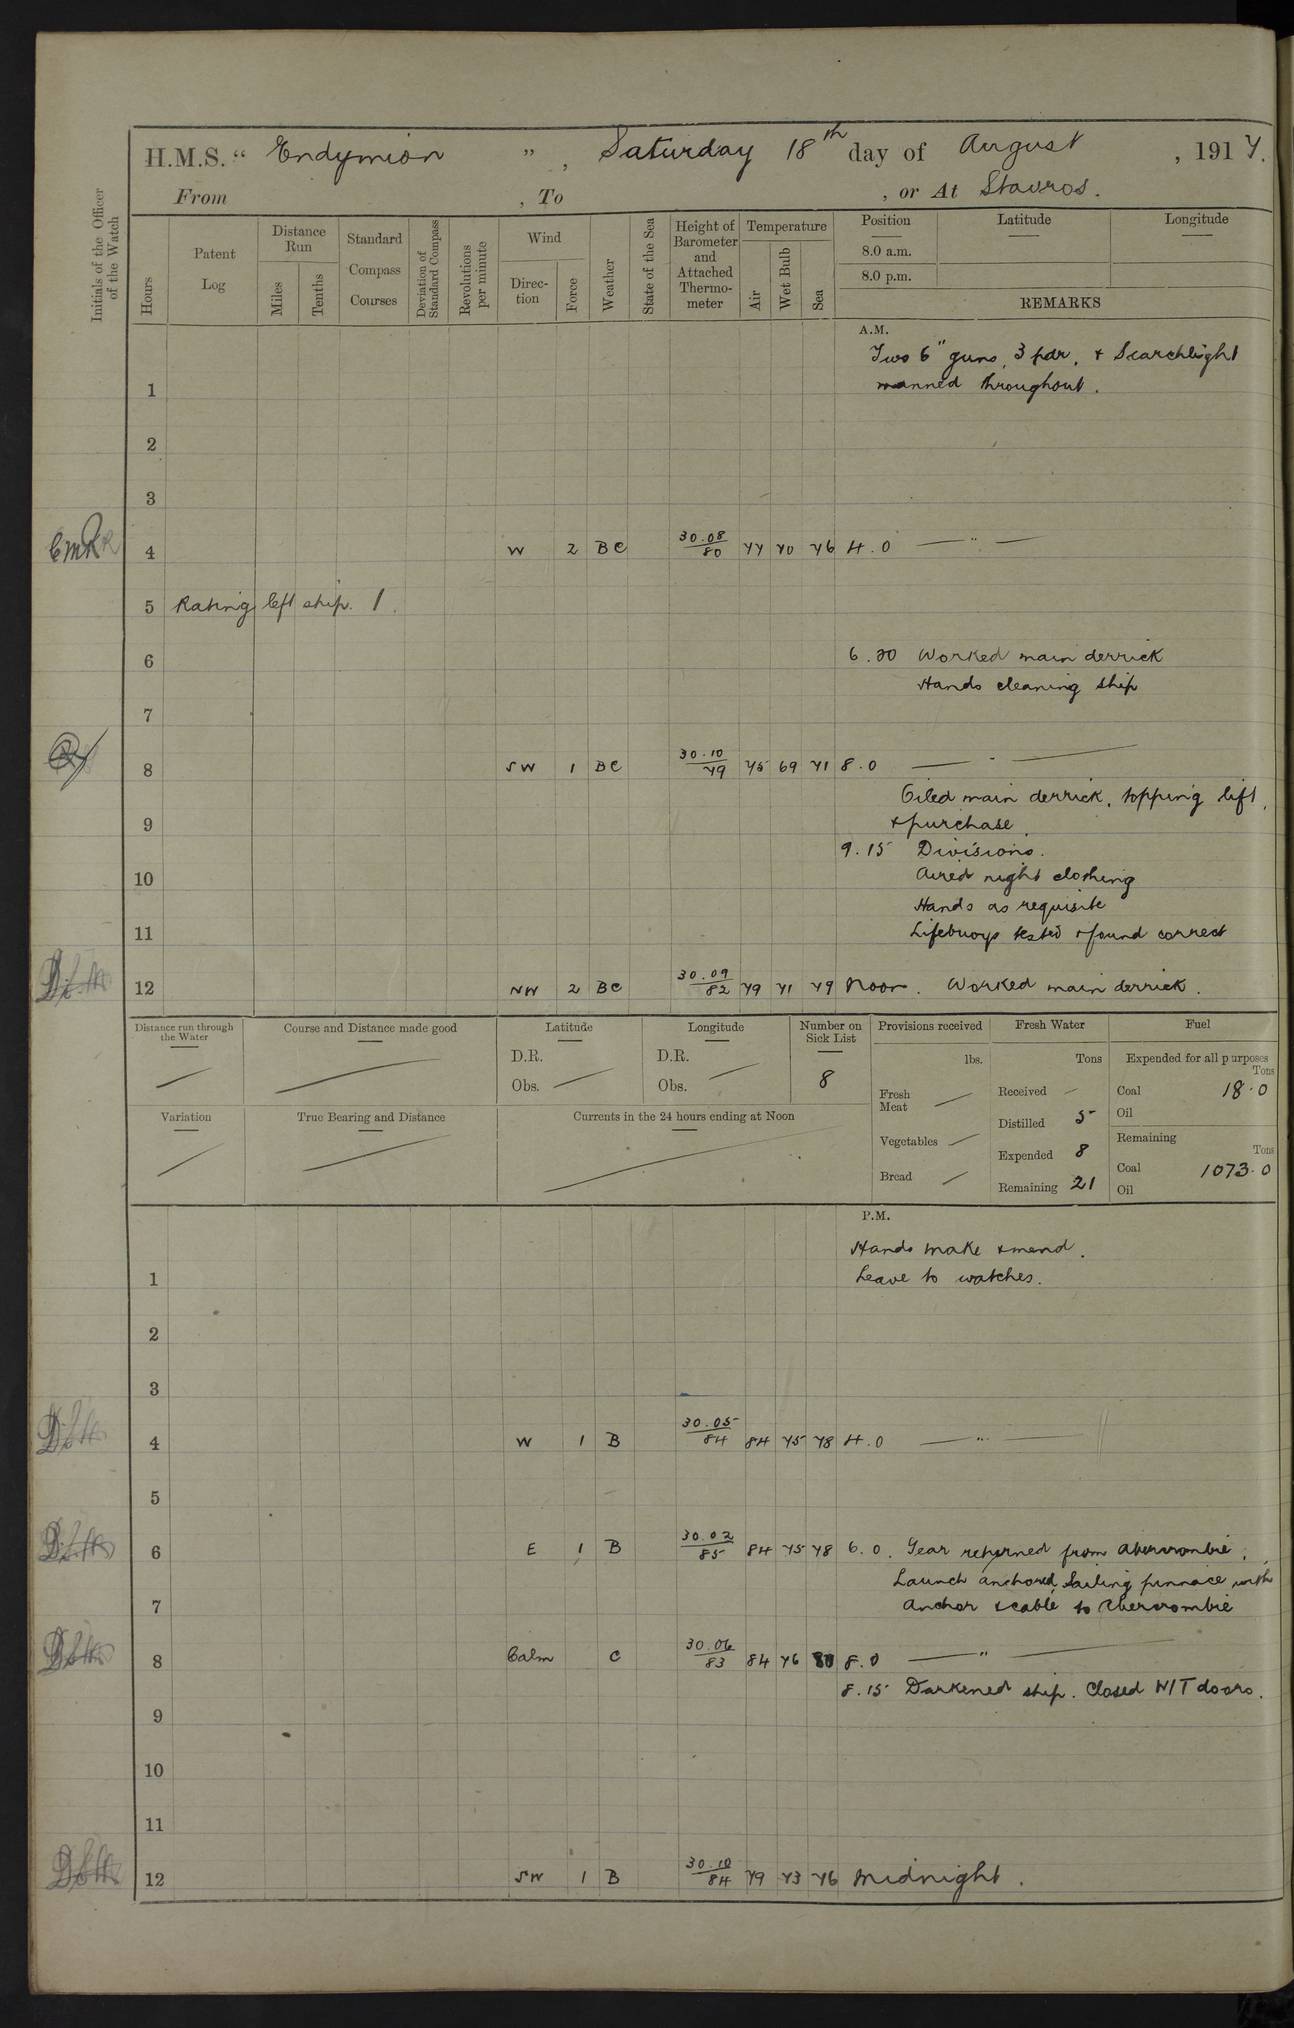 H.M.S. "Endymion", Saturday 18th day of August, 1917.
From , To , or At Stavros.
Initials of the Officer of the Watch
Hours
Patent Log
Distance Run
Miles
Tenths
Standard Compass Courses
Deviation of Standard Compass
Revolutions per minute
Wind
Direction
Force
Weather
State of the Sea
Height of Barometer and Attached Thermometer
Temperature
Air
Wet Bulb
Sea
Position
Latitude
Longitude
8.0 a.m.
8.0 p.m.
REMARKS
A.M.
Two 6" guns, 3 pdr. & Searchlight
1 manned throughout.
2
3
4 W 2 BC 30.08/80 77 70 76 4.0 — " —
5 Rating left ship. 1.
6 6.30 Worked main derrick
Hands cleaning ship
7
8 SW 1 BC 30.10/79 75 69 71 8.0 — " —
Oiled main derrick, topping lift,
9 & purchase.
9.15 Divisions.
10 Aired night clothing
Hands as requisite
11 Lifebuoys tested & found correct
12 NW 2 BC 30.09/82 79 71 79 Noon. Worked main derrick.
Distance run through the Water
Course and Distance made good
Latitude
D.R.
Obs.
Longitude
D.R.
Obs.
Number on Sick List
8
Provisions received
lbs.
Fresh Meat
Vegetables
Bread
Fresh Water
Tons
Received —
Distilled 5
Expended 8
Remaining 21
Fuel
Expended for all purposes
Tons
Coal 18.0
Oil
Remaining
Tons
Coal 1073.0
Oil
Variation
True Bearing and Distance
Currents in the 24 hours ending at Noon
P.M.
Hands make & mend.
1 Leave to watches.
2
3
4 W 1 B 30.05/84 84 75 78 4.0 — " —
5
6 E 1 B 30.02/85 84 75 78 6.0. Gear returned from Abercrombie.
Launch anchored, Sailing pinnace with
7 anchor & cable to Abercrombie
8 Calm C 30.06/83 84 76 80 8.0 — " —
8.15 Darkened ship. Closed W/T doors.
9
10
11
12 SW 1 B 30.10/84 79 73 76 Midnight.